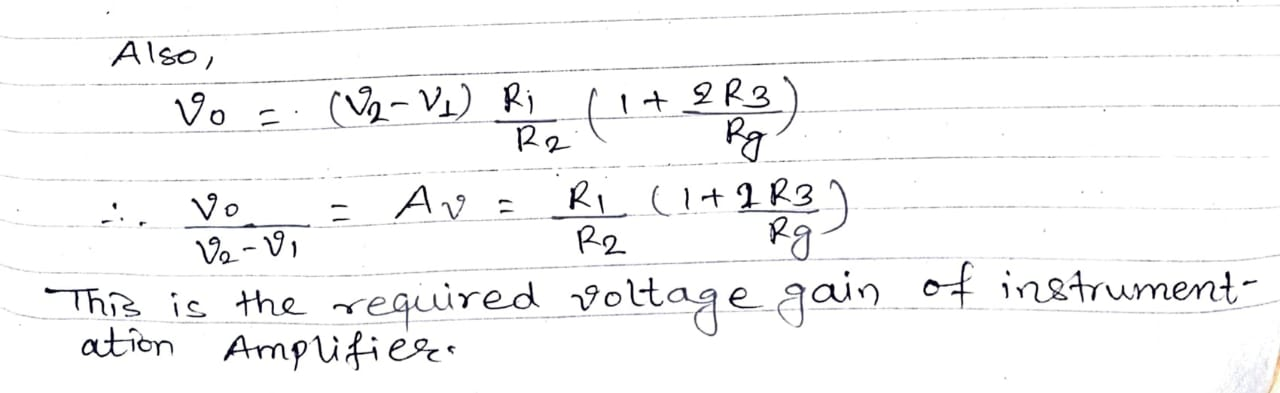 Also,
Vo = (V2-V1) R1/R2 (1 + 2R3/Rg)
∴ Vo/(V2-V1) = Av = R1/R2 (1+2R3/Rg)
This is the required voltage gain of instrument-
ation Amplifier.